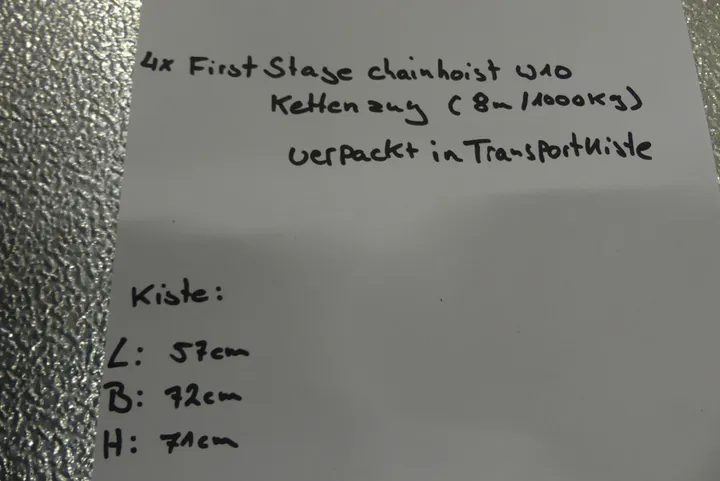 4x First Stage chainhoist W10
Kettenzug (8m/1000Kg)
verpackt in Transportkiste
Kiste:
L: 57cm
B: 72cm
H: 71cm